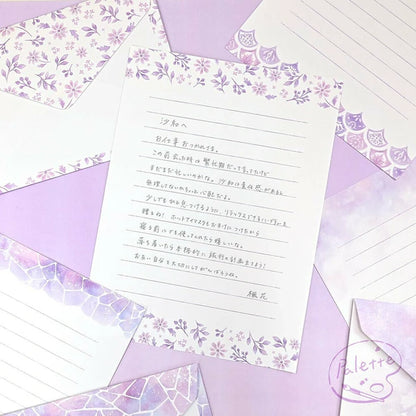 沙和へ
お仕事おつかれさま。
この前会った時は繁忙期だって言ってたけど
まだまだ忙しいのかな。沙和は責任感があるから
無理してないかちょっと心配だよ。
少しでも息をつけるように、リラックスできる
贈るね！ホットアイマスクもおまけにつけたから
寝る前にでも使ってみたら嬉しいな。
落ち着いたら本格的に旅行の計画立てよう！
お互い自分を大切にしてがんばろうね。
楓花
Palette